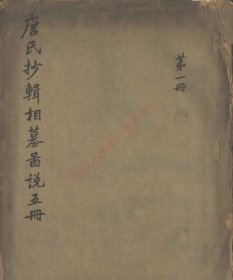 第一冊
唐氏抄輯相墓啚說五冊